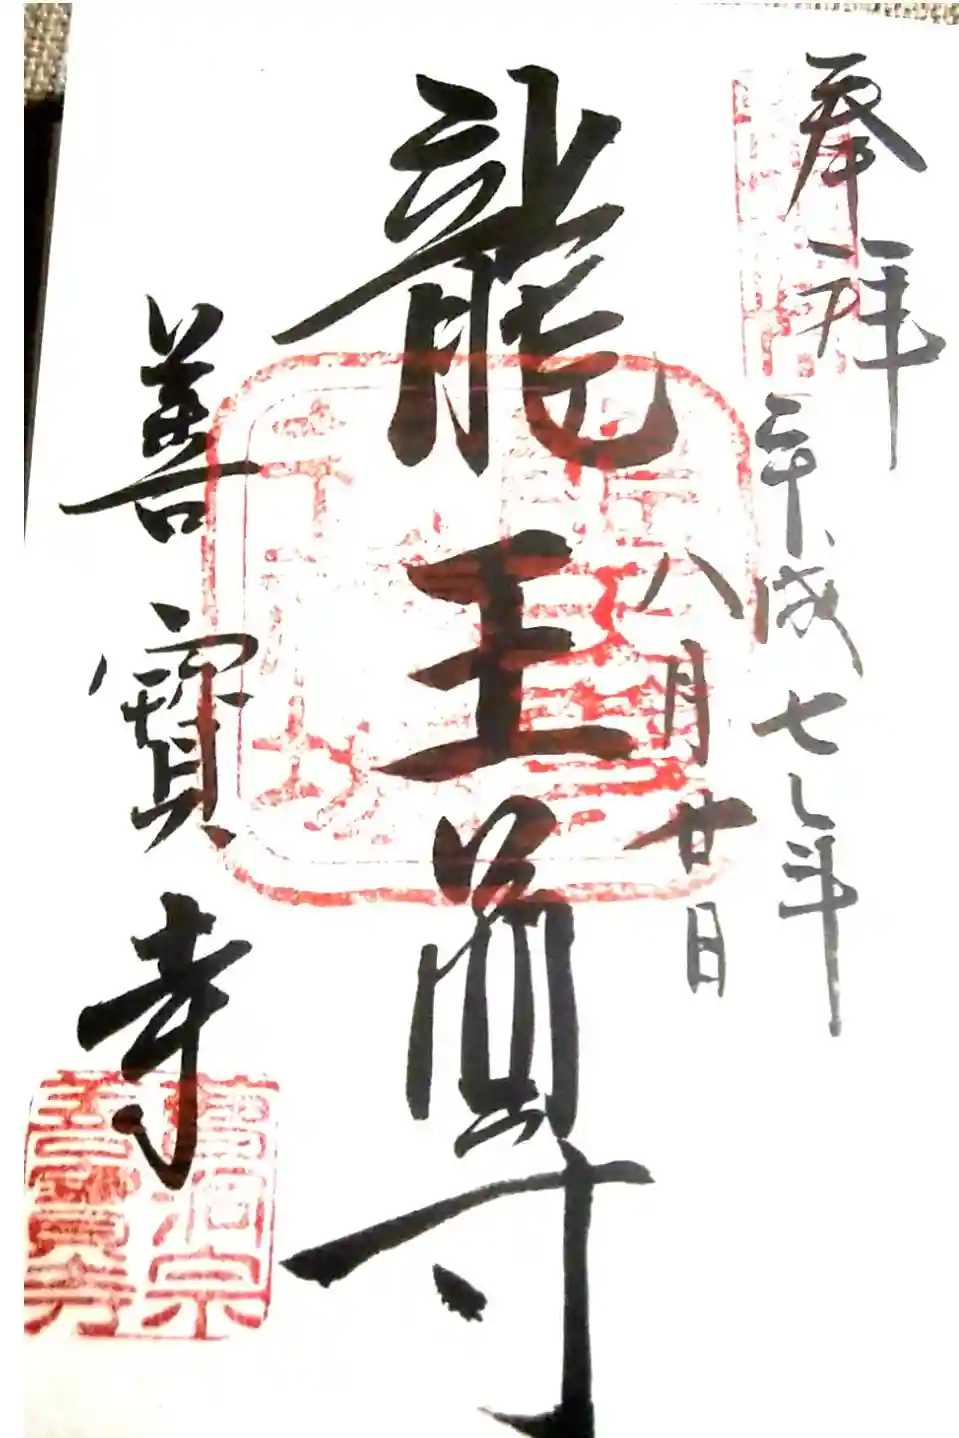 奉拜
平成七年
八月廿日
龍王尊
善寳寺
曹洞宗
善寳寺